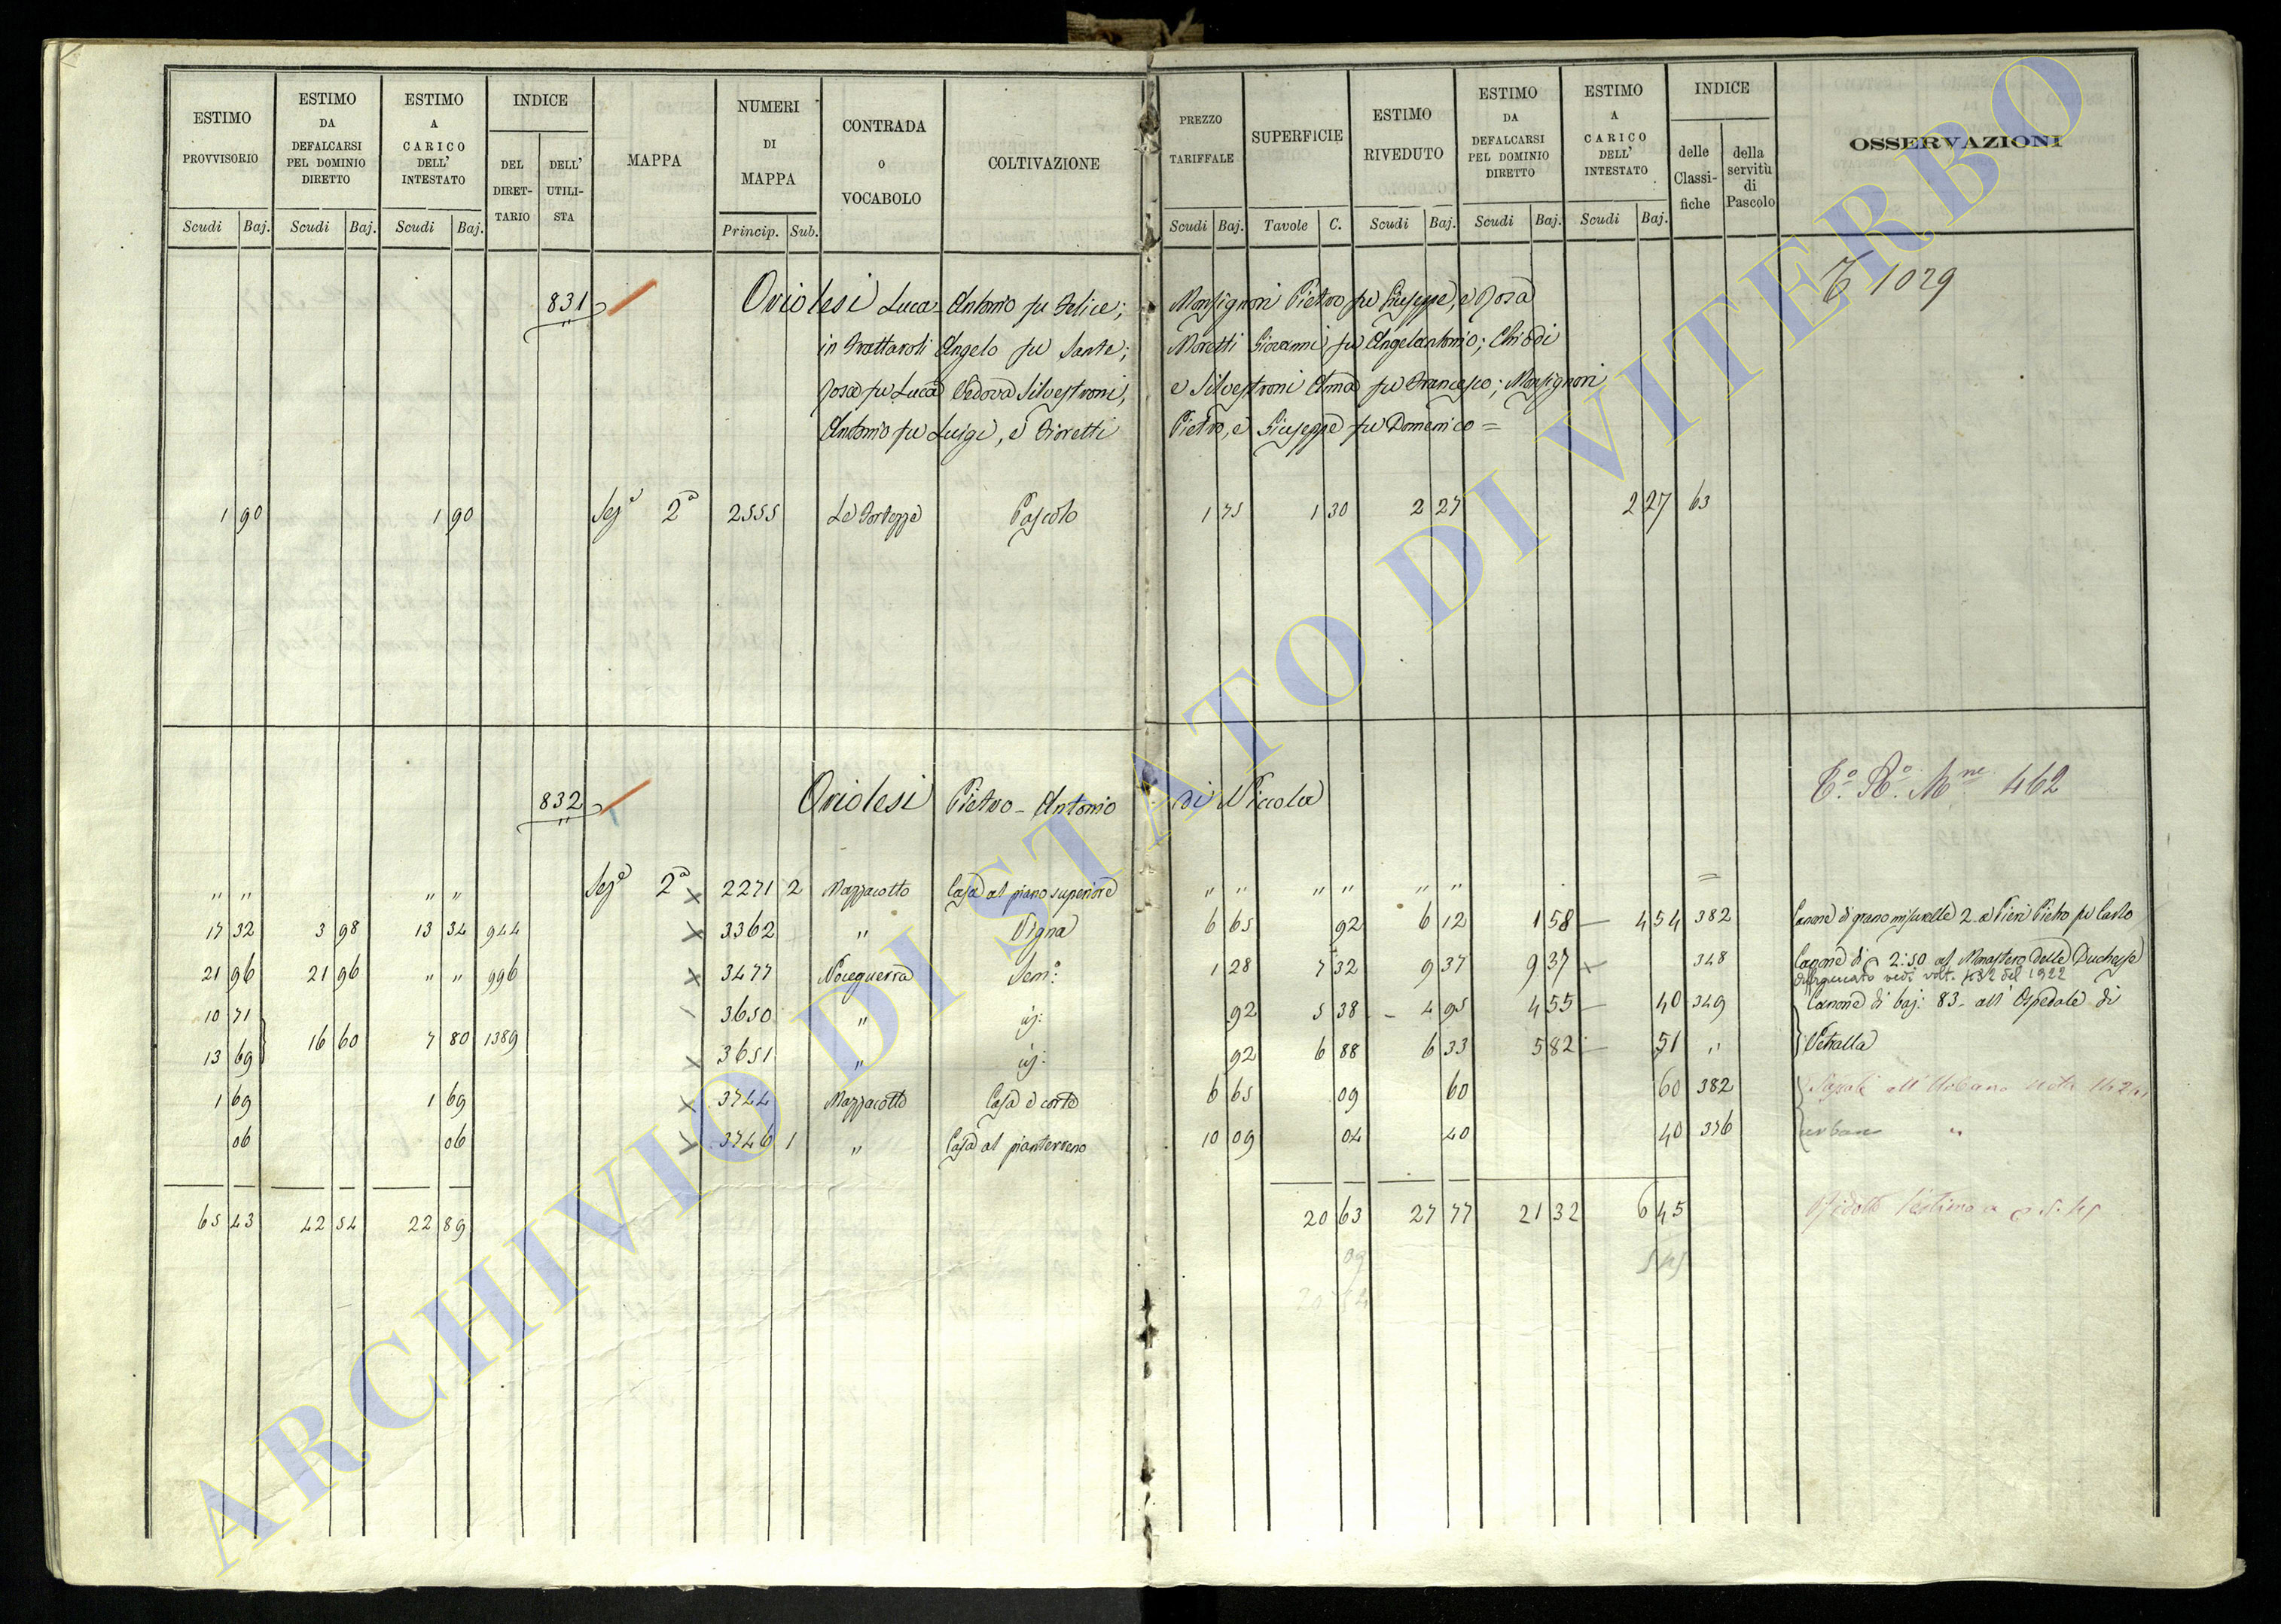 ESTIMO PROVVISORIO | ESTIMO DA DEFALCARSI PEL DOMINIO DIRETTO | ESTIMO A CARICO DELL' INTESTATO | INDICE | MAPPA | NUMERI DI MAPPA | CONTRADA o VOCABOLO | COLTIVAZIONE | PREZZO TARIFFALE | SUPERFICIE | ESTIMO RIVEDUTO | ESTIMO DA DEFALCARSI PEL DOMINIO DIRETTO | ESTIMO A CARICO DELL' INTESTATO | INDICE | OSSERVAZIONI
DEL DIRETTARIO | DELL' UTILISTA | delle Classifiche | della servitù di Pascolo
Scudi Baj. | Scudi Baj. | Scudi Baj. | Princip. Sub. | Scudi Baj. | Tavole C. | Scudi Baj. | Scudi Baj. | Scudi Baj.
831 Oriolesi Luca-Antonio fu Felice; Monsignori Pietro fu Giuseppe, e Rosa 1029
in Frattaroli Angelo fu Sante; Moretti Giovanni fu Angelantonio; Chiodi
Rosa fu Luca Vedova Silvestroni; e Silvestroni Anna fu Francesco; Monsignori
Antonio fu Luigi, e Fioretti Pietro, e Giuseppe fu Domenico =
1 90 1 90 Seze 2a 2555 Le Fortezze Pascolo 1 75 1 30 2 27 2 27 63
832 Oriolesi Pietro-Antonio di Niccola 462
" " " " Seze 2a 2271 2 Mazzacotto Casa al piano superiore " " " " " " =
17 32 3 98 13 34 944 3362 " Vigna 6 65 92 6 12 1 58 4 54 382 Canone di grano misurelle 2 a Pieri Pietro fu Carlo
21 96 21 96 " " 996 3477 Noceguerra Sem: 1 28 7 32 9 37 9 37 348 Canone di 2:50 al Monastero delle Duchesse
vedi volt. 432 del 1922
10 71 3650 " id: 92 5 38 4 95 4 55 40 349 Canone di baj: 83- all'Ospedale di
13 69 16 60 7 80 1389 3651 " id: 92 6 88 6 33 5 82 51 " Vetralla
1 69 1 69 3744 Mazzacotto Casa e corte 6 65 09 60 60 382 all'Urbano
06 06 3746 1 " Casa al pianterreno 10 09 04 40 40 376 urbano "
65 43 42 54 22 89 20 63 27 77 21 32 6 45 l'estimo a
09
20 54
ARCHIVIO DI STATO DI VITERBO